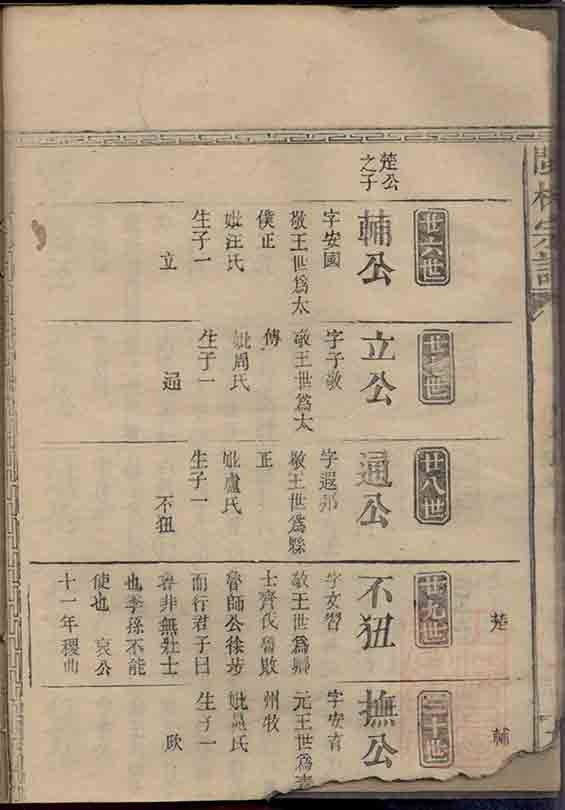 林宗譜
廿六世
楚公
之子
輔公
字安國
敬王世爲太
僕正
妣汪氏
生子一
立
廿七世
立公
字子敬
敬王世爲太
傅
妣周氏
生子一
通
廿八世
通公
字遐邦
敬王世爲縣
正
妣盧氏
生子一
不狃
楚
廿九世
不狃
字文習
敬王世爲鄉
士齊伐魯敗
魯師公徐步
而行君子曰
魯非無壯士
也季孫不能
使也 哀公
十一年稷曲
輔
三十世
撫公
字安育
元王世爲
州牧
妣 氏
生子一
歐